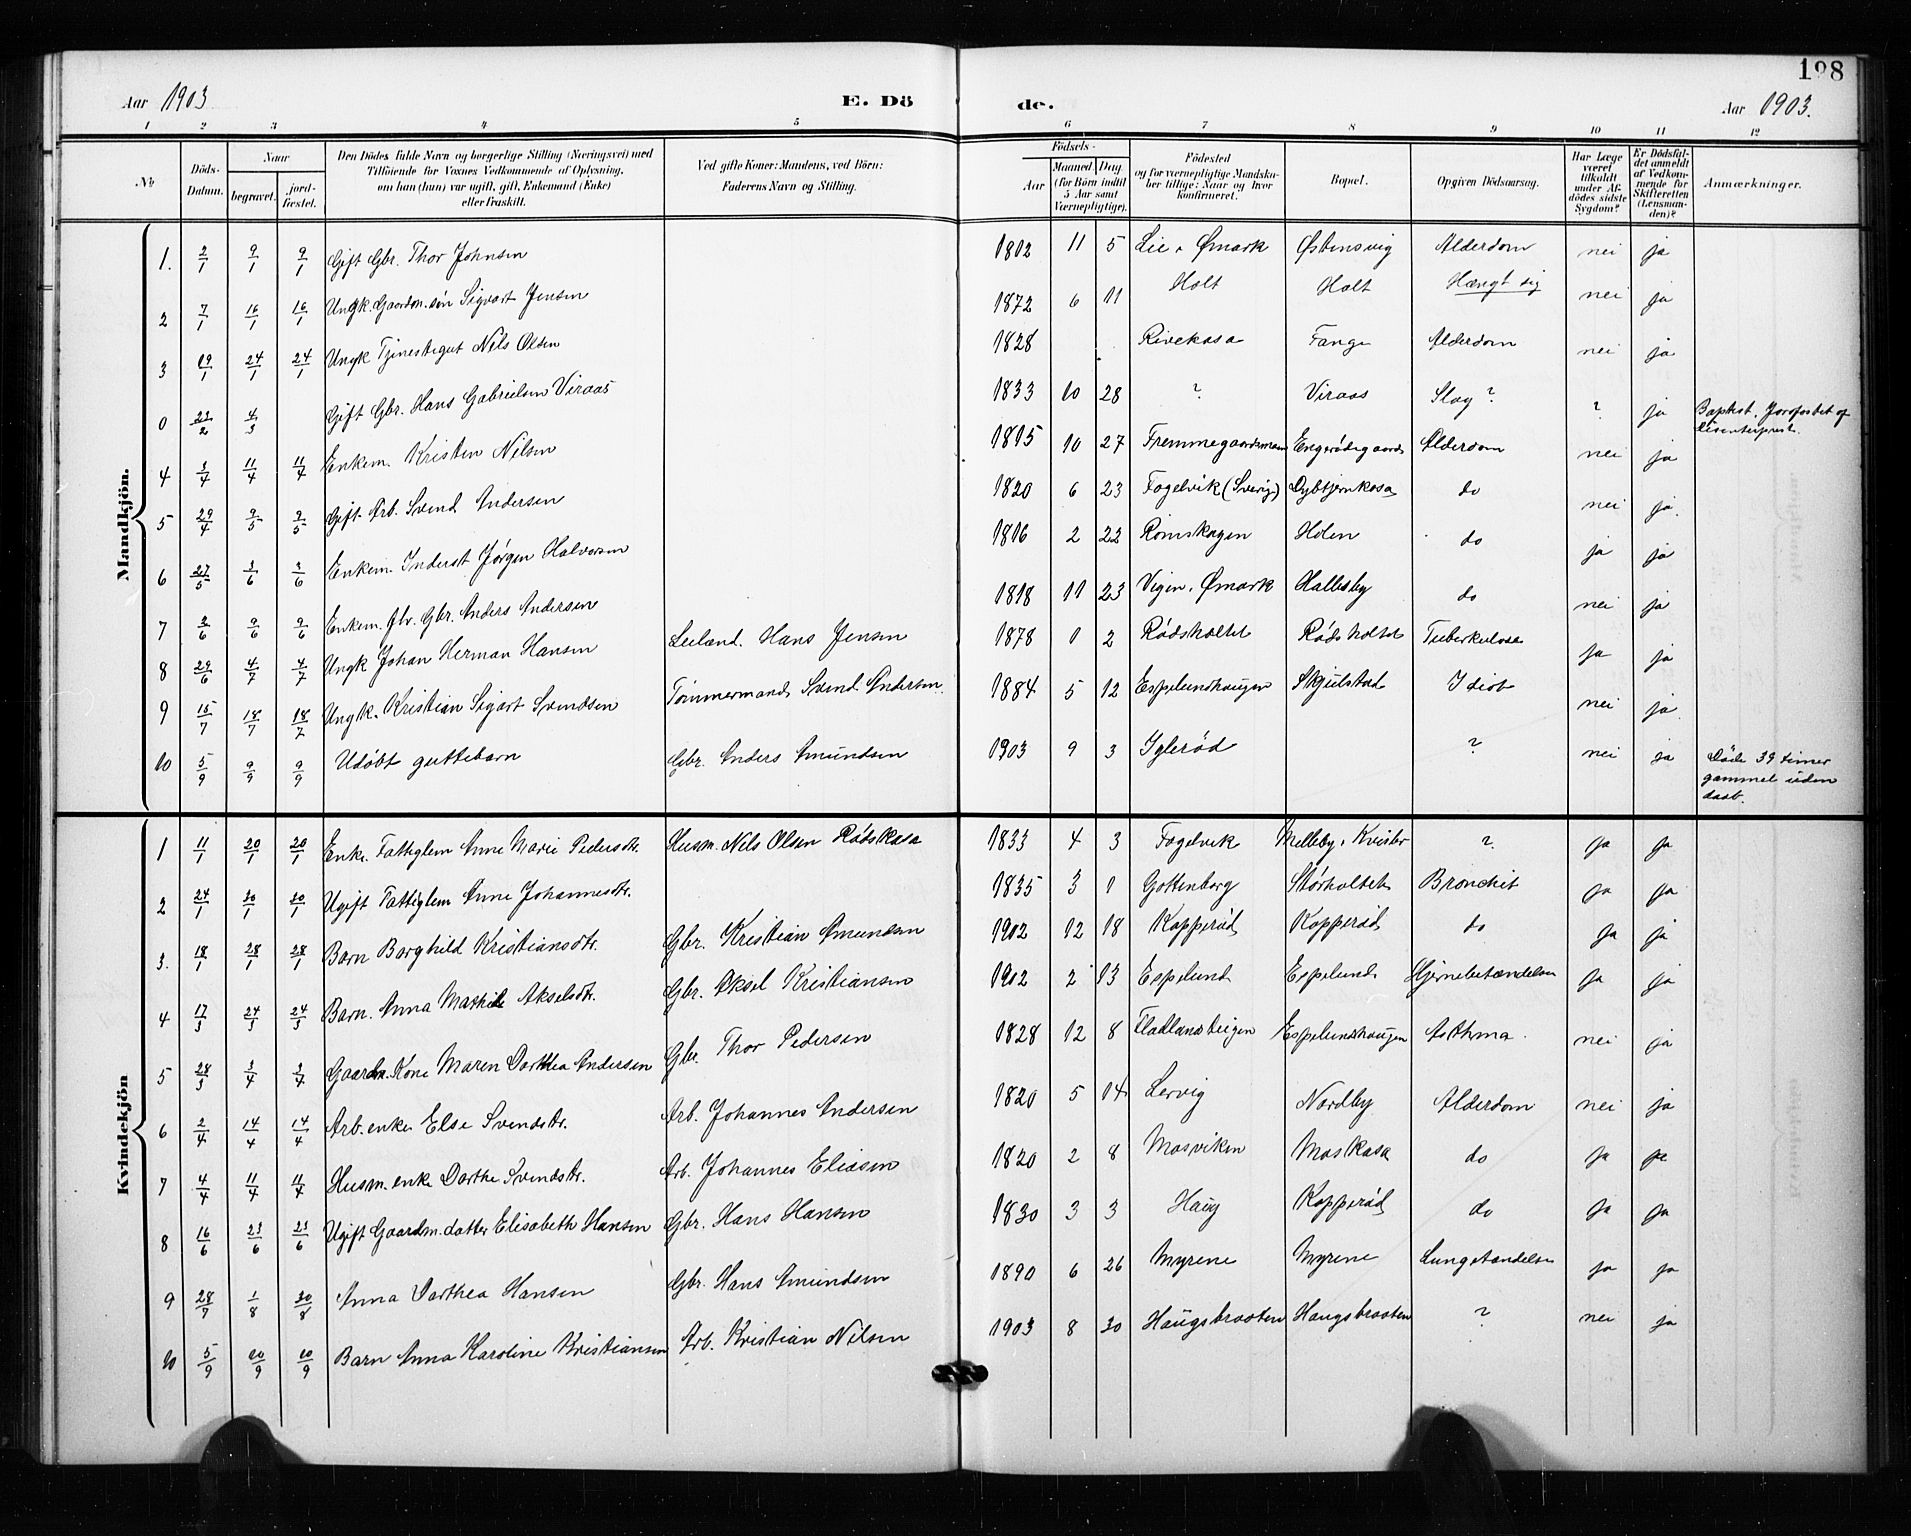 198
Aar 1903
E. Dö
de.
Aar 1903.
1 2 3 4 5 6 7 8 9 10 11 12
No
Döds-Datum.
Naar
begravet.
jord-fæstet.
Den Dödes fulde Navn og borgerlige Stilling (Næringsvei) med
Tilföiende for Voxnes Vedkommende af Oplysning,
om han (hun) var ugift, gift, Enkemand (Enke)
eller fraskilt.
Ved gifte Koner: Mandens, ved Börn:
Faderens Navn og Stilling.
Födsels-
Aar
Maaned
Dag
(for Börn indtil
5 Aar samt
Værnepligtige).
Födested
og for værnepligtige Mandska-
ber tillige: Naar og hvor
konfirmeret.
Bopæl.
Opgiven Dödsaarsag.
Har Læge
været
tilkaldt
under Af-
dödes sidste
Sygdom?
Er Dödsfal-
det anmeldt
af Vedkom-
mende for
Skifteretten
(Lensman-
den)?
Anmærkninger.
Mandkjön.
1. 2/1 9/1 9/1 Gift Gbr. Thor Johnsen 1812 11 5 Lie i Ømark Østensvig Alderdom nei ja
2 7/1 16/1 16/1 Ungk. Gaardm. søn Sigvart Jensen 1872 6 11 Holt Holt Hængt sig nei ja
3 19/1 24/1 24/1 Ungk Tjenestegut Nils Olsen 1828 Rivekasa Tange Alderdom nei ja
0 22/2 4/3 Gift Gbr. Hans Gabrielsen Viraas 1833 10 28 ? Viraas Slag? ? ja Baptist. Jordfæstet af
Disenterprest.
4 3/4 11/4 11/4 Enkem. Kristen Nilsen 1815 10 27 Fremmegaardsmoen Engerødegaard Alderdom nei ja
5 29/4 9/5 9/5 Gift Arb. Svend Andersen 1820 6 23 Fogelvik (Sverig) Dybtjernkasa do nei ja.
6 27/5 3/6 3/6 Enkem. Inderst Jørgen Halvorsen 1816 2 22 Rømskogen Holen do ja ja
7 3/6 9/6 9/6 Enkem. Gbr. Anders Andersen 1818 11 23 Vigen i Ømark Hallesby do nei ja
8 29/6 4/7 4/7 Ungk Johan Herman Hansen Leiland. Hans Jensen 1878 1 2 Rødsholtet Rødsholtet Tuberkulose ja ja
9 15/7 18/7 18/7 Ungk. Kristian Sigart Svendsen Tømmermand Svend Andersen. 1884 5 12 Espelundhaugen Skjulstad Idiot nei ja.
10 5/9 9/9 9/9 Udøbt guttebarn Gbr. Anders Amundsen 1903 9 3 Iglerød ? nei ja Døde 39 timer
gammel uden
daab.
Kvindekjön
1 11/1 20/1 20/1 Enke. Fattiglem Anne Marie Pedersdtr. Husm. Nils Olsen Rødskasa 1833 4 3 Fogelvik Melleby i Krister ? ja ja
2 24/1 30/1 30/1 Ugift Fattiglem Anne Johannesdtr. 1835 3 1 Gottenborg Størholtet Bronchit ja ja
3. 18/1 28/1 28/1 Barn Borghild Kristiansdtr. Gbr. Kristian Amundsen 1902 12 18 Kopperød Kopperød do ja ja
4 17/3 24/3 24/3 Barn. Anna Mathilde Akselsdtr. Gbr. Aksel Kristiansen 1902 2 13 Espelund Espelund Hjernebetændelse ja ja
5 28/3 3/4 3/4 Gaardm. Kone Maren Dorthea Andersen Gbr. Thor Pedersen 1828 12 8 Fladlandsteigen Espelundhaugen Asthma. nei ja
6 2/4 14/4 14/4 Arb. enke Else Svendsdtr. Arb. Johannes Andersen 1820 5 14 Lervig Nordby Alderdom nei ja
7 4/4 11/4 11/4 Husm. enke Dorthe Svendsdtr. Arb. Johannes Eliasen 1820 2 8 Mosviken Moskasa do ja ja
8 16/6 23/6 23/6 Ugift Gaardm. datter Elisabeth Hansen Gbr. Hans Hansen 1830 3 3 Haug Kopperød do ja ja
9 28/7 1/8 30/8 Anna Dorthea Hansen Gbr. Hans Amundsen 1890 6 26 Myrene Myrene Lungetændelse ja ja
10 5/9 10/9 10/9 Barn Anna Karoline Kristiansen Arb. Kristian Nilsen 1903 8 30 Haugsbraaten Haugsbraaten ? nei ja